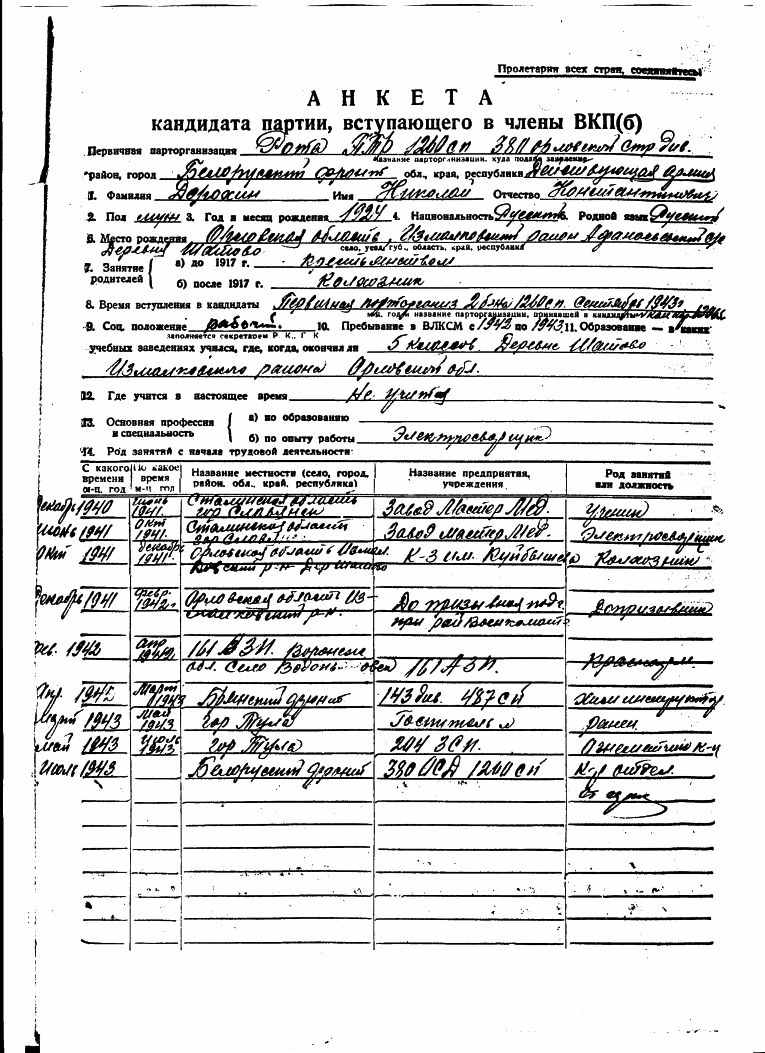 Пролетарии всех стран, соединяйтесь!
АНКЕТА
кандидата партии, вступающего в члены ВКП(б)
Первичная парторганизация Рота ПТР 1260 сп 380 орловской стр див.
название парторганизации, куда подано заявление
район, город Белорусский фронт обл., край, республика Действующая армия
1. Фамилия Дорохин Имя Николай Отчество Константинович
2. Пол муж 3. Год и месяц рождения 1924 4. Национальность Русский 5. Родной язык Русский
6. Место рождения Орловская область, Измалковский район Афанасьевский с/с
Деревня Шатово село, уезд, губ., область, край, республика
7. Занятие родителей { а) до 1917 г. крестьянством
б) после 1917 г. Колхозник
8. Время вступления в кандидаты Первичная парторганиз 2 б-на 1260 сп. Сентябрь 1943 г
м-ц, год и название парторганизации, принявшей в кандидаты
9. Соц. положение рабочий 10. Пребывание в ВЛКСМ с 1942 по 1943 11. Образование — в каких
заполняется секретарем Р. К., Г К
учебных заведениях учился, где, когда, окончил ли 5 классов Деревне Шатово
Измалковского района Орловской обл.
12. Где учится в настоящее время Не учится
13. Основная профессия и специальность { а) по образованию
б) по опыту работы Электросварщик
14. Род занятий с начала трудовой деятельности:
С какого времени м-ц, год | По какое время м-ц год | Название местности (село, город, район, обл., край, республика) | Название предприятия, учреждения | Род занятий или должность
Декабрь 1940 | Июнь 1941. | Сталинская область гор Славянск | Завод Мастер | Ученик
Июнь 1941 | Окт 1941. | Сталинская область гор | Завод Мастер | Электросварщик
Окт 1941 | Декабрь 1941. | Орловская область Измалковский р-н Дер Шатово | К-З им. Куйбышева | Колхозник
Декабрь 1941 | Февр. 1942 г. | Орловская область Измалковский р-н. | Допризывная подг. при райвоенкомате | Допризывник
1942 | Апр 1942 | 161 АЗП. Воронеж обл. Село | 161 АЗП. | Красноарм.
Апр. 1942 | Март 1943 | Брянский фронт | 143 див. 487 СП | Хим инструктор
Март 1943 | Май 1943 | гор Тула | Госпиталь | ранен.
Май 1943 | Июль 1943 | гор Тула | 204 ЗСП. |
Июль 1943 | | Белорусский фронт | 380 ОСД 1260 СП | К-р отдел.